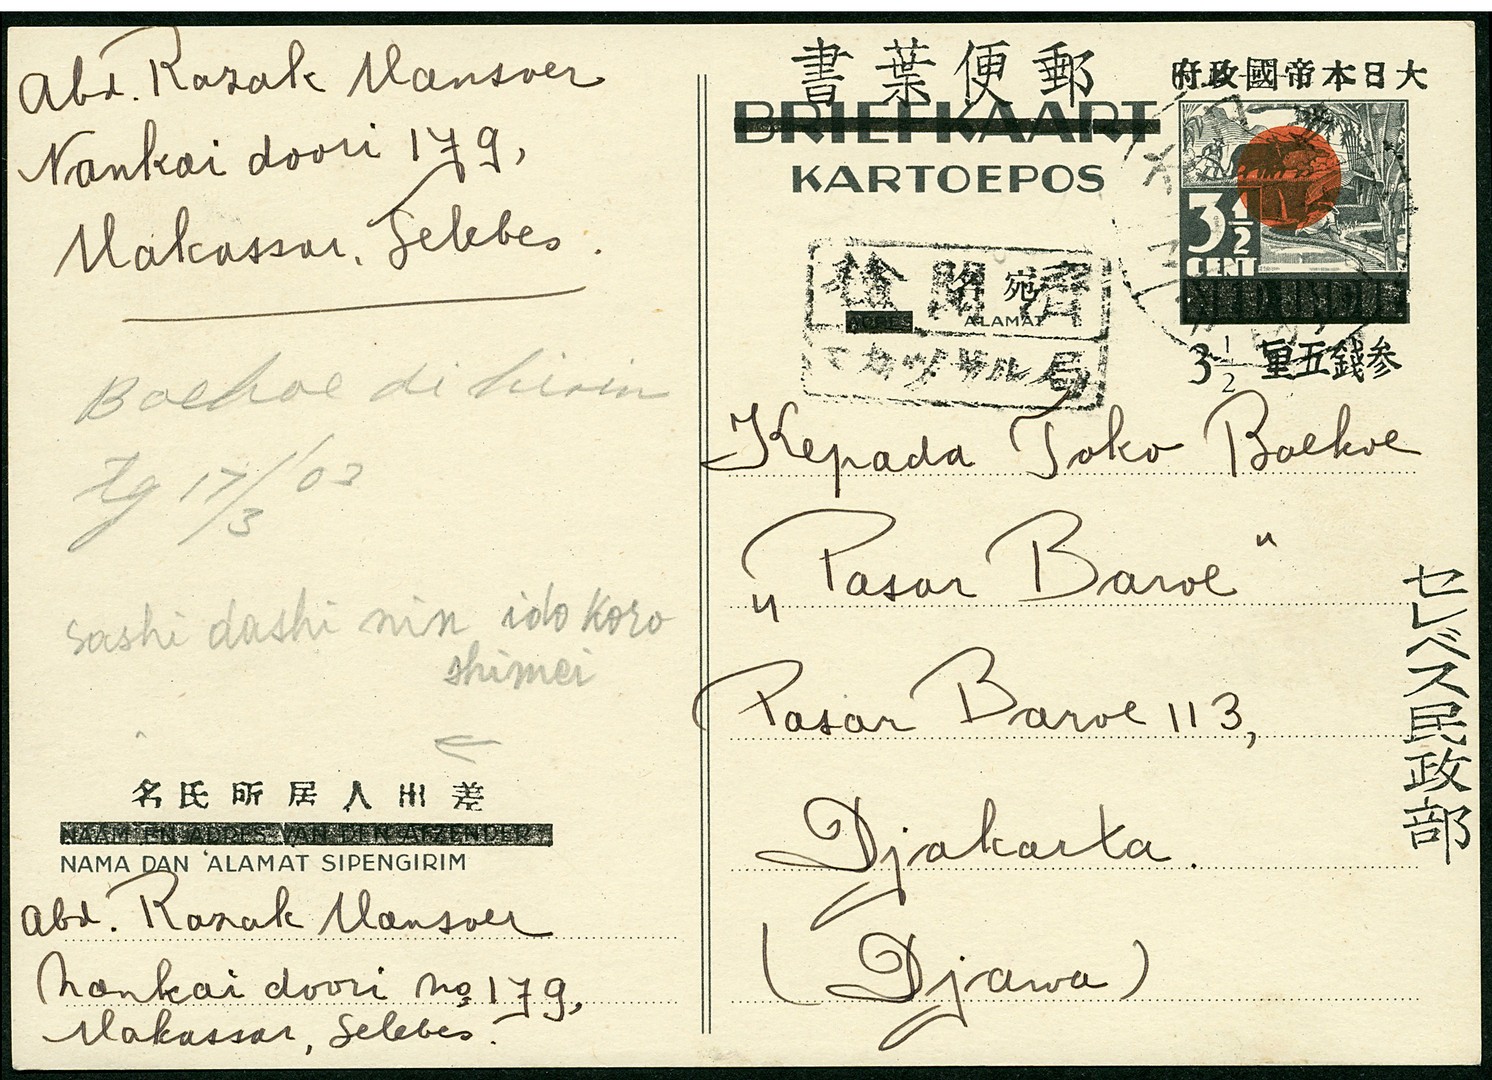 Abd. Razak Mansoer
Nankai doori 179,
Makassar, Selebes.
Boekoe di kirim
tg 17/3 '03
sashi dashi nin ido koro
shimei
名氏所居人出差
NAAM EN ADRES VAN DEN AFZENDER
NAMA DAN ALAMAT SIPENGIRIM
Abd. Razak Mansoer
Nankai doori no 179,
Makassar, Selebes.
書葉便郵
BRIEFKAART
KARTOEPOS
府政國帝本日大
3½
CENT
3½ 重五錢参
濟閲檢
名宛
ADRES ALAMAT
マカッサル局
Kepada Toko Boekoe
"Pasar Baroe"
Pasar Baroe 113,
Djakarta.
(Djawa)
セレベス民政部